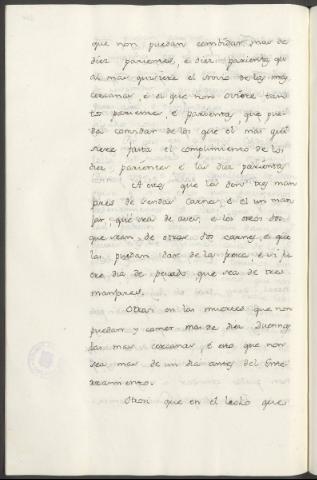 que non puedan combidar, mas de
diez parientes, e diez parientas que
al mas quisiere el novio de las mas
cercanas, e el que non oviere tan
to pariente, e parienta, que pue
da convidar de los que el mas qui
siere fasta el complimiento de los
diez parientes e las diez parientas
que las den tres man
jares de sendas carnes, e el un man
jar, que sea de aves, e los otros dos
que sean, de otras dos carnes, e que
las puedan dar de las e si fu
ere dia de pescado, que sea de tres
manjares.
Otrosi en las muertes que non
puedan y comer mas de diez duenas
las mas cercanas, e esto que non
sea mas de un dia antes del Ente
rramiento.
Otrosi que en el lecho que